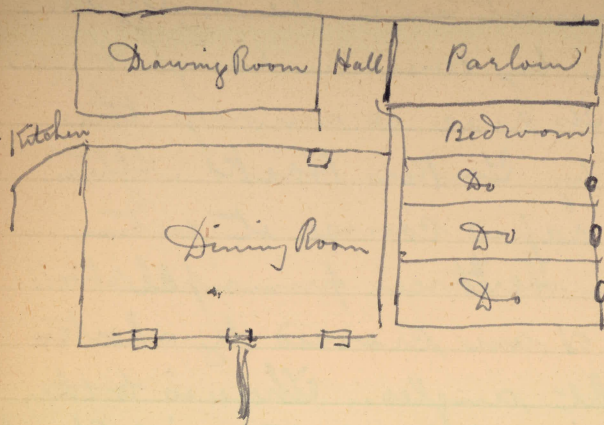 Drawing Room
Hall
Parlour
Kitchen
Bedroom
Do
Do
Do
Dining Room